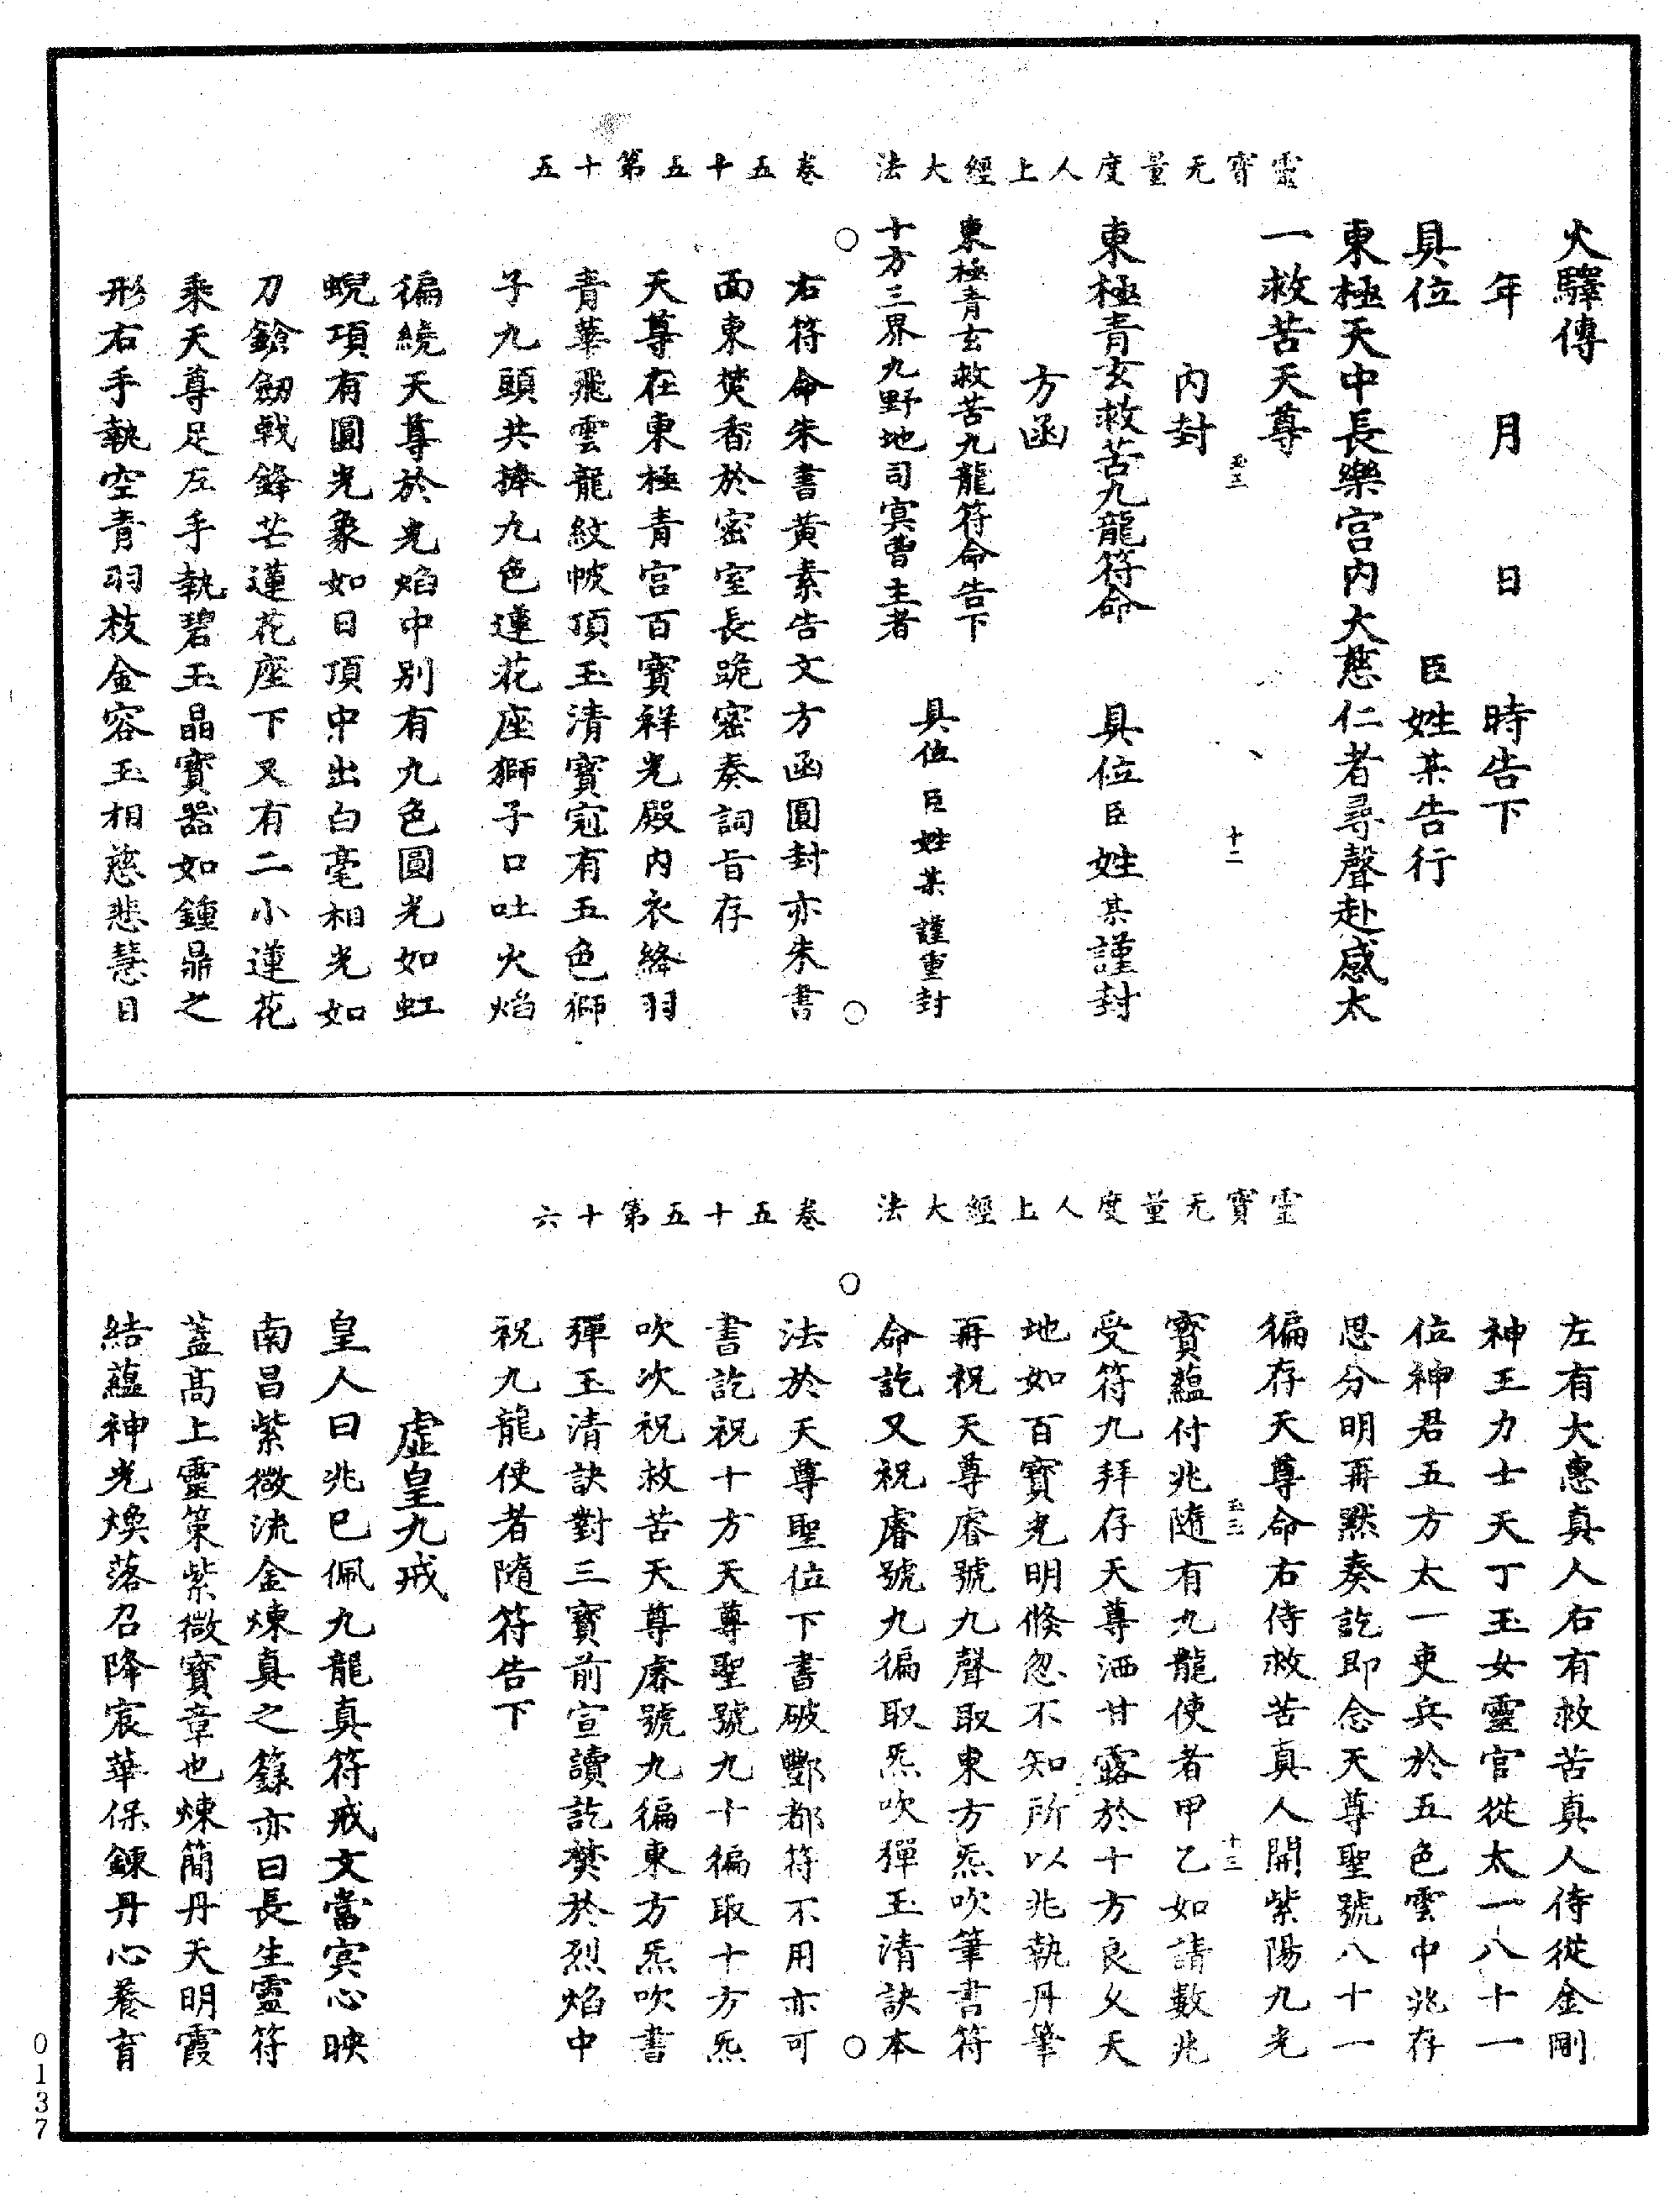 靈寶无量度人上經大法　卷五十五第十五
火驛傳
年　月　日　時告下
具位　臣姓某告行
東極天中長樂宮內大慈仁者尋聲赴感太
一救苦天尊
玉三　十二
內封
東極青玄救苦九龍符命　具位臣姓某謹封
方函
東極青玄救苦九龍符命告下
十方三界九野地司冥曹主者　具位臣姓某謹重封
右符命朱書黃素告文方函圓封亦朱書
面東焚香於密室長跪密奏詞旨存
天尊在東極青宮百寶祥光殿內衣絳羽
青華飛雲龍紋帔頂玉清寶冠有五色獅
子九頭共捧九色蓮花座獅子口吐火焰
徧繞天尊於光焰中別有九色圓光如虹
蜺項有圓光象如日頂中出白毫相光如
刀鎗劒戟鋒芒蓮花座下又有二小蓮花
乘天尊足左手執碧玉晶寶器如鍾鼎之
形右手執空青羽枝金容玉相慈悲慧目
靈寶无量度人上經大法　卷五十五第十六
左有大惠真人右有救苦真人侍從金剛
神王力士天丁玉女靈官從太一八十一
位神君五方太一吏兵於五色雲中兆存
思分明再默奏訖即念天尊聖號八十一
徧存天尊命右侍救苦真人開紫陽九光
玉三　十三
寶蘊付兆隨有九龍使者甲乙如請數兆
受符九拜存天尊洒甘露於十方良久天
地如百寶光明倏忽不知所以兆執丹筆
再祝天尊睿號九聲取東方炁吹筆書符
命訖又祝睿號九徧取炁吹彈玉清訣本
法於天尊聖位下書破酆都符不用亦可
書訖祝十方天尊聖號九十徧取十方炁
吹次祝救苦天尊睿號九徧東方炁吹書
彈玉清訣對三寶前宣讀訖焚於烈焰中
祝九龍使者隨符告下
虛皇九戒
皇人曰兆巳佩九龍真符戒文當冥心映
南昌紫微流金煉真之籙亦曰長生靈符
蓋高上靈策紫微寶章也煉簡丹天明霞
結蘊神光煥落召降宸華保鍊丹心養育
0137